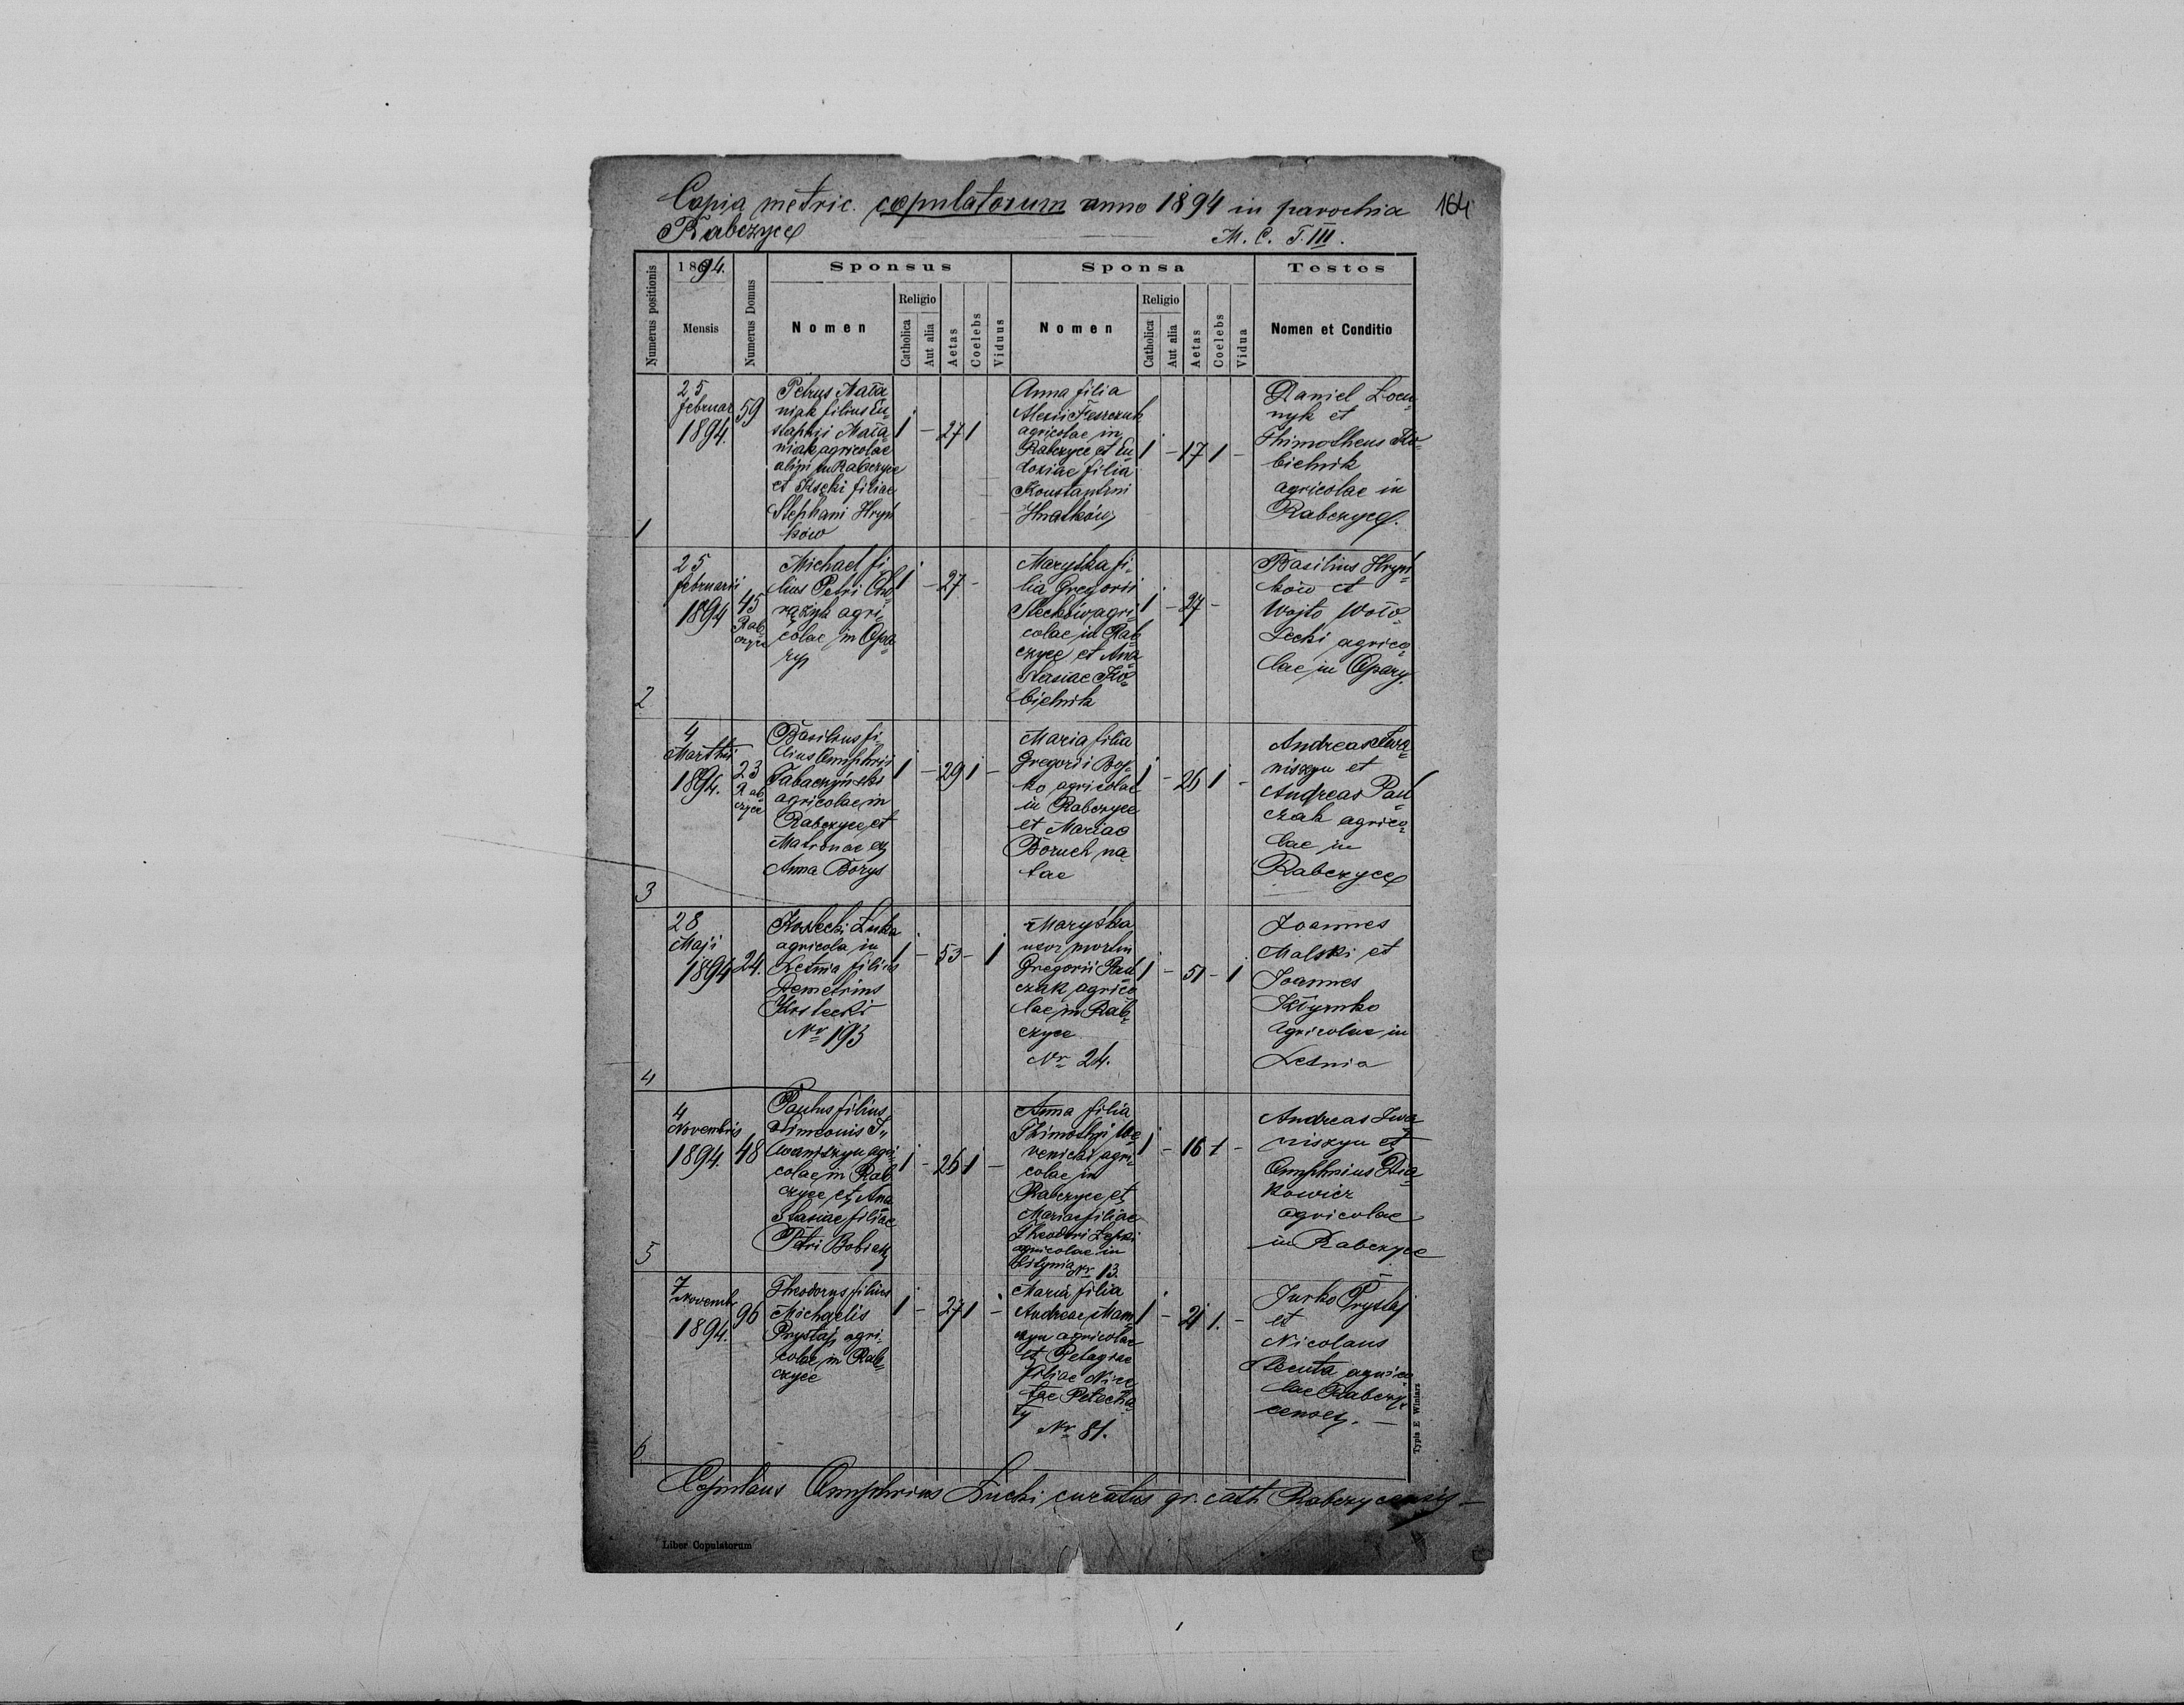 Copia metric. copulatorum anno 1894 in parochia 164
Rabczyce M. C. T. III.
Numerus positionis
1894.
Mensis
Numerus Domus
Sponsus
Nomen
Religio
Catholica
Aut alia
Aetas
Coelebs
Viduus
Sponsa
Nomen
Religio
Catholica
Aut alia
Aetas
Coelebs
Vidua
Testes
Nomen et Conditio
1
25
februar
1894.
59
Petrus
niak filius Eu-
niak agricolae
in Rabczyce
et filiae
Stephani Hryń
ków
1 - 27 1
Anna filia
Alexii
agricolae in
Rabczyce et Eu
doxiae filia
Konstantini
Hnatków
1 - 17 1 -
Daniel
nyk et
Thimotheus Ko-
bielnik
agricolae in
Rabczyce.
2
25
februarii
1894
45
Rab-
czyce
Michael fi-
lius Petri Cho-
rążyk agri-
colae in Opa-
ry
1 - 27 -
Maryśka fi-
lia Gregorii
Steckow agri-
colae in Rab-
czyce et Ana-
stasiae Ko-
bielnik
1 - 27 -
Basilius Hryń-
ków et
Wojto
agrico-
lae in Opary.
3
4
Marthii
1894.
23
Rab-
czyce
Basilius fi-
lius Onuphrii
Tabaczyński
agricolae in
Rabczyce et
Matronae ex
Anna Borys
1 - 29 1 -
Maria filia
Gregorii Boj-
ko agricolae
in Rabczyce
et Mariae
Boruch na-
tae
1 - 26 1 -
Andreas Iwa-
niszyn et
Andreas Paw-
czak agrico-
lae in
Rabczyce
4
28
Maji
1894
24.
Kostecki Luka
agricola in
Letnia filius
Demetrius
Kostecki
Nr 193
1 - 53 - 1
Maryśka
uxor mortui
Gregorii Paw-
czak agrico
lae in Rab-
czyce
Nr 24.
1 - 51 - 1
Joannes
Malski et
Joannes
Kłymko
agricolae in
Letnia
5
4
Novembris
1894.
48
Paulus filius
Simeonis I-
waniszyn agri-
colae in Rab
czyce et Ana
stasiae filiae
Petri Bobiak
1 - 26 1 -
Anna filia
Thimothji
agri-
colae in
Rabczyce et
Mariae filiae
Theodori
agricolae in
Nr 13.
1 - 16 1 -
Andreas Iwa-
niszyn et
Onuphrius Dia-
kowicz
agricolae
in Rabczyce
6
7
Novembr
1894.
96
Theodorus filius
Michaelis
Prystaj agri-
colae in Rab-
czyce
1 - 27 1 -
Maria filia
Andreae Mam-
czyn agricolae
et Pelagiae
filiae Nice-
tae Petecha-
ty
Nr 81.
1 - 21 1. -
Jurko Prystaj
et
Nicolaus
agrico-
lae Rabczy-
censes. —
Copulans Onuphrius Łucki curatus gr. cath Rabczycensis —
Typis E Winiarz
Liber Copulatorum